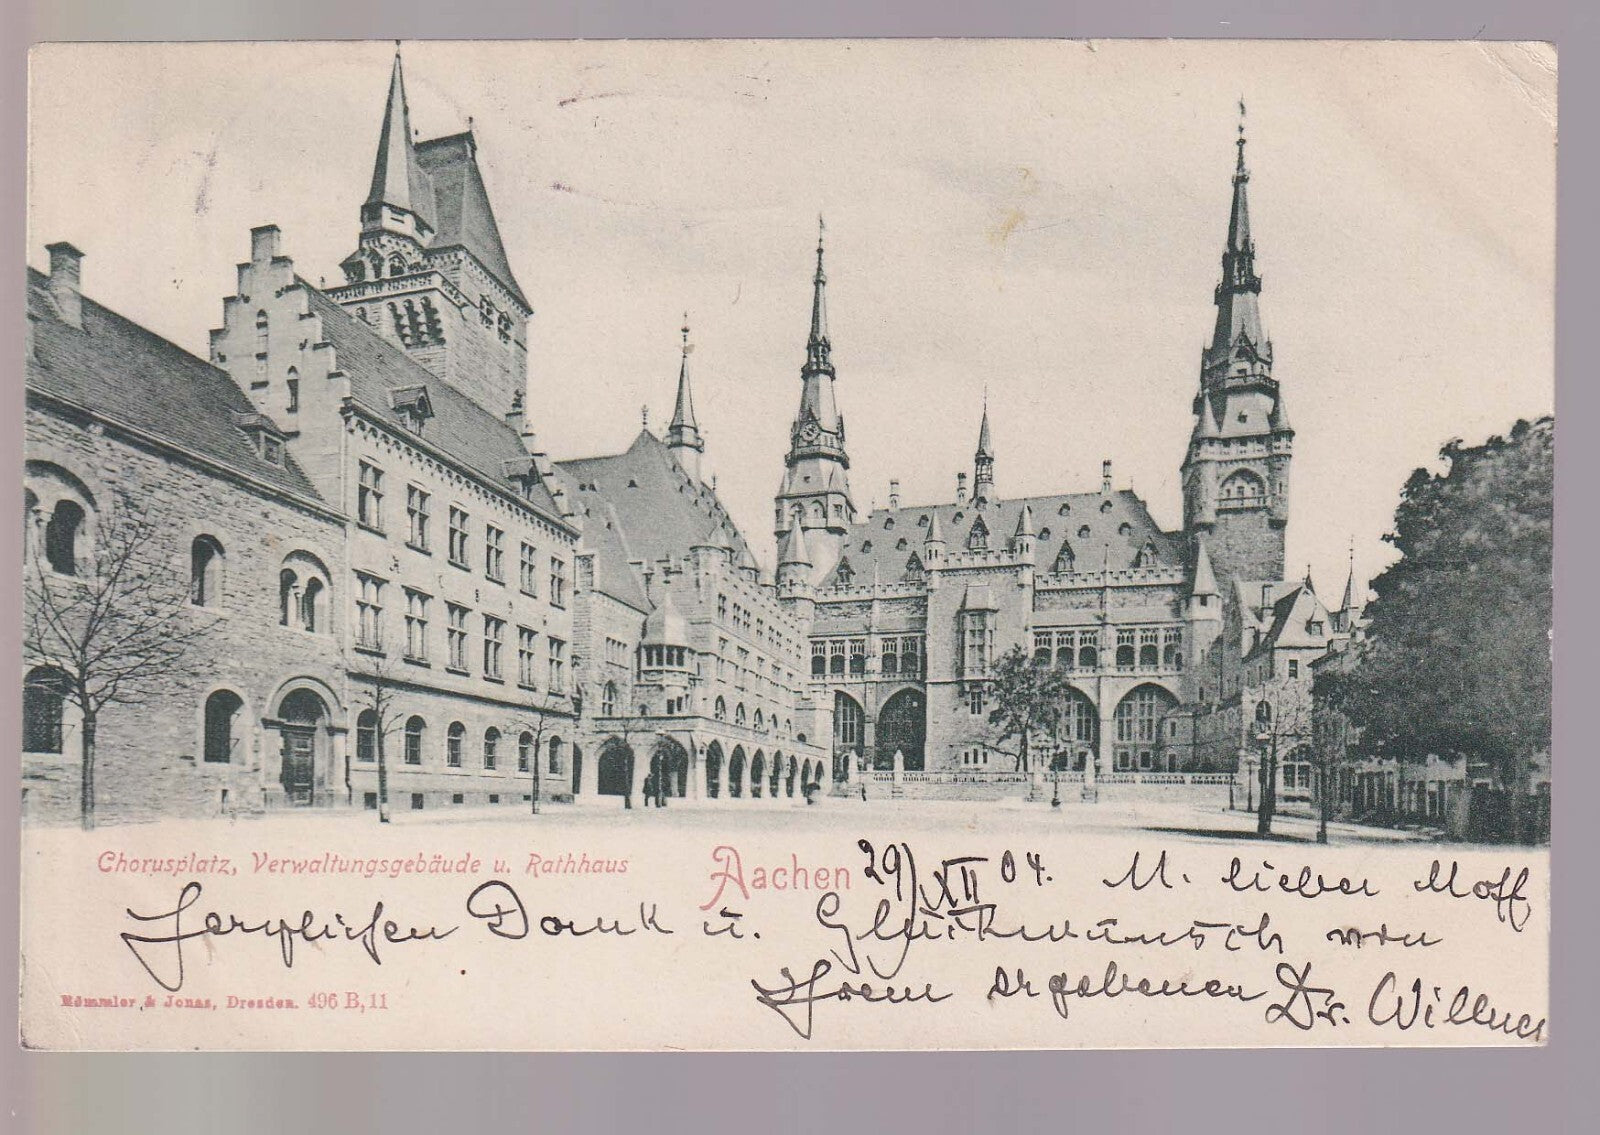 Chorusplatz, Verwaltungsgebäude u. Rathhaus
Aachen 29/XII 04. M. lieber Moff,
Herzlichen Dank u. Glückwunsch von
Ihrem ergebenen Dr. Willner
Römmler & Jonas, Dresden. 496 B,11